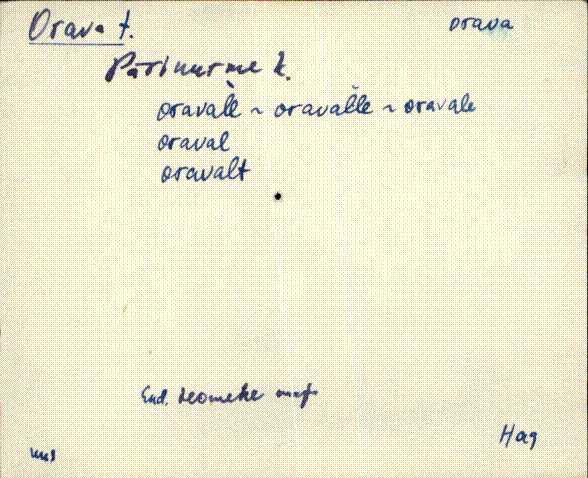 Orava t. orava
Pärinurme k.
oravalè ~ oravaĺle ~ oravale
oraval
oravalt
End. leomehe
Hag